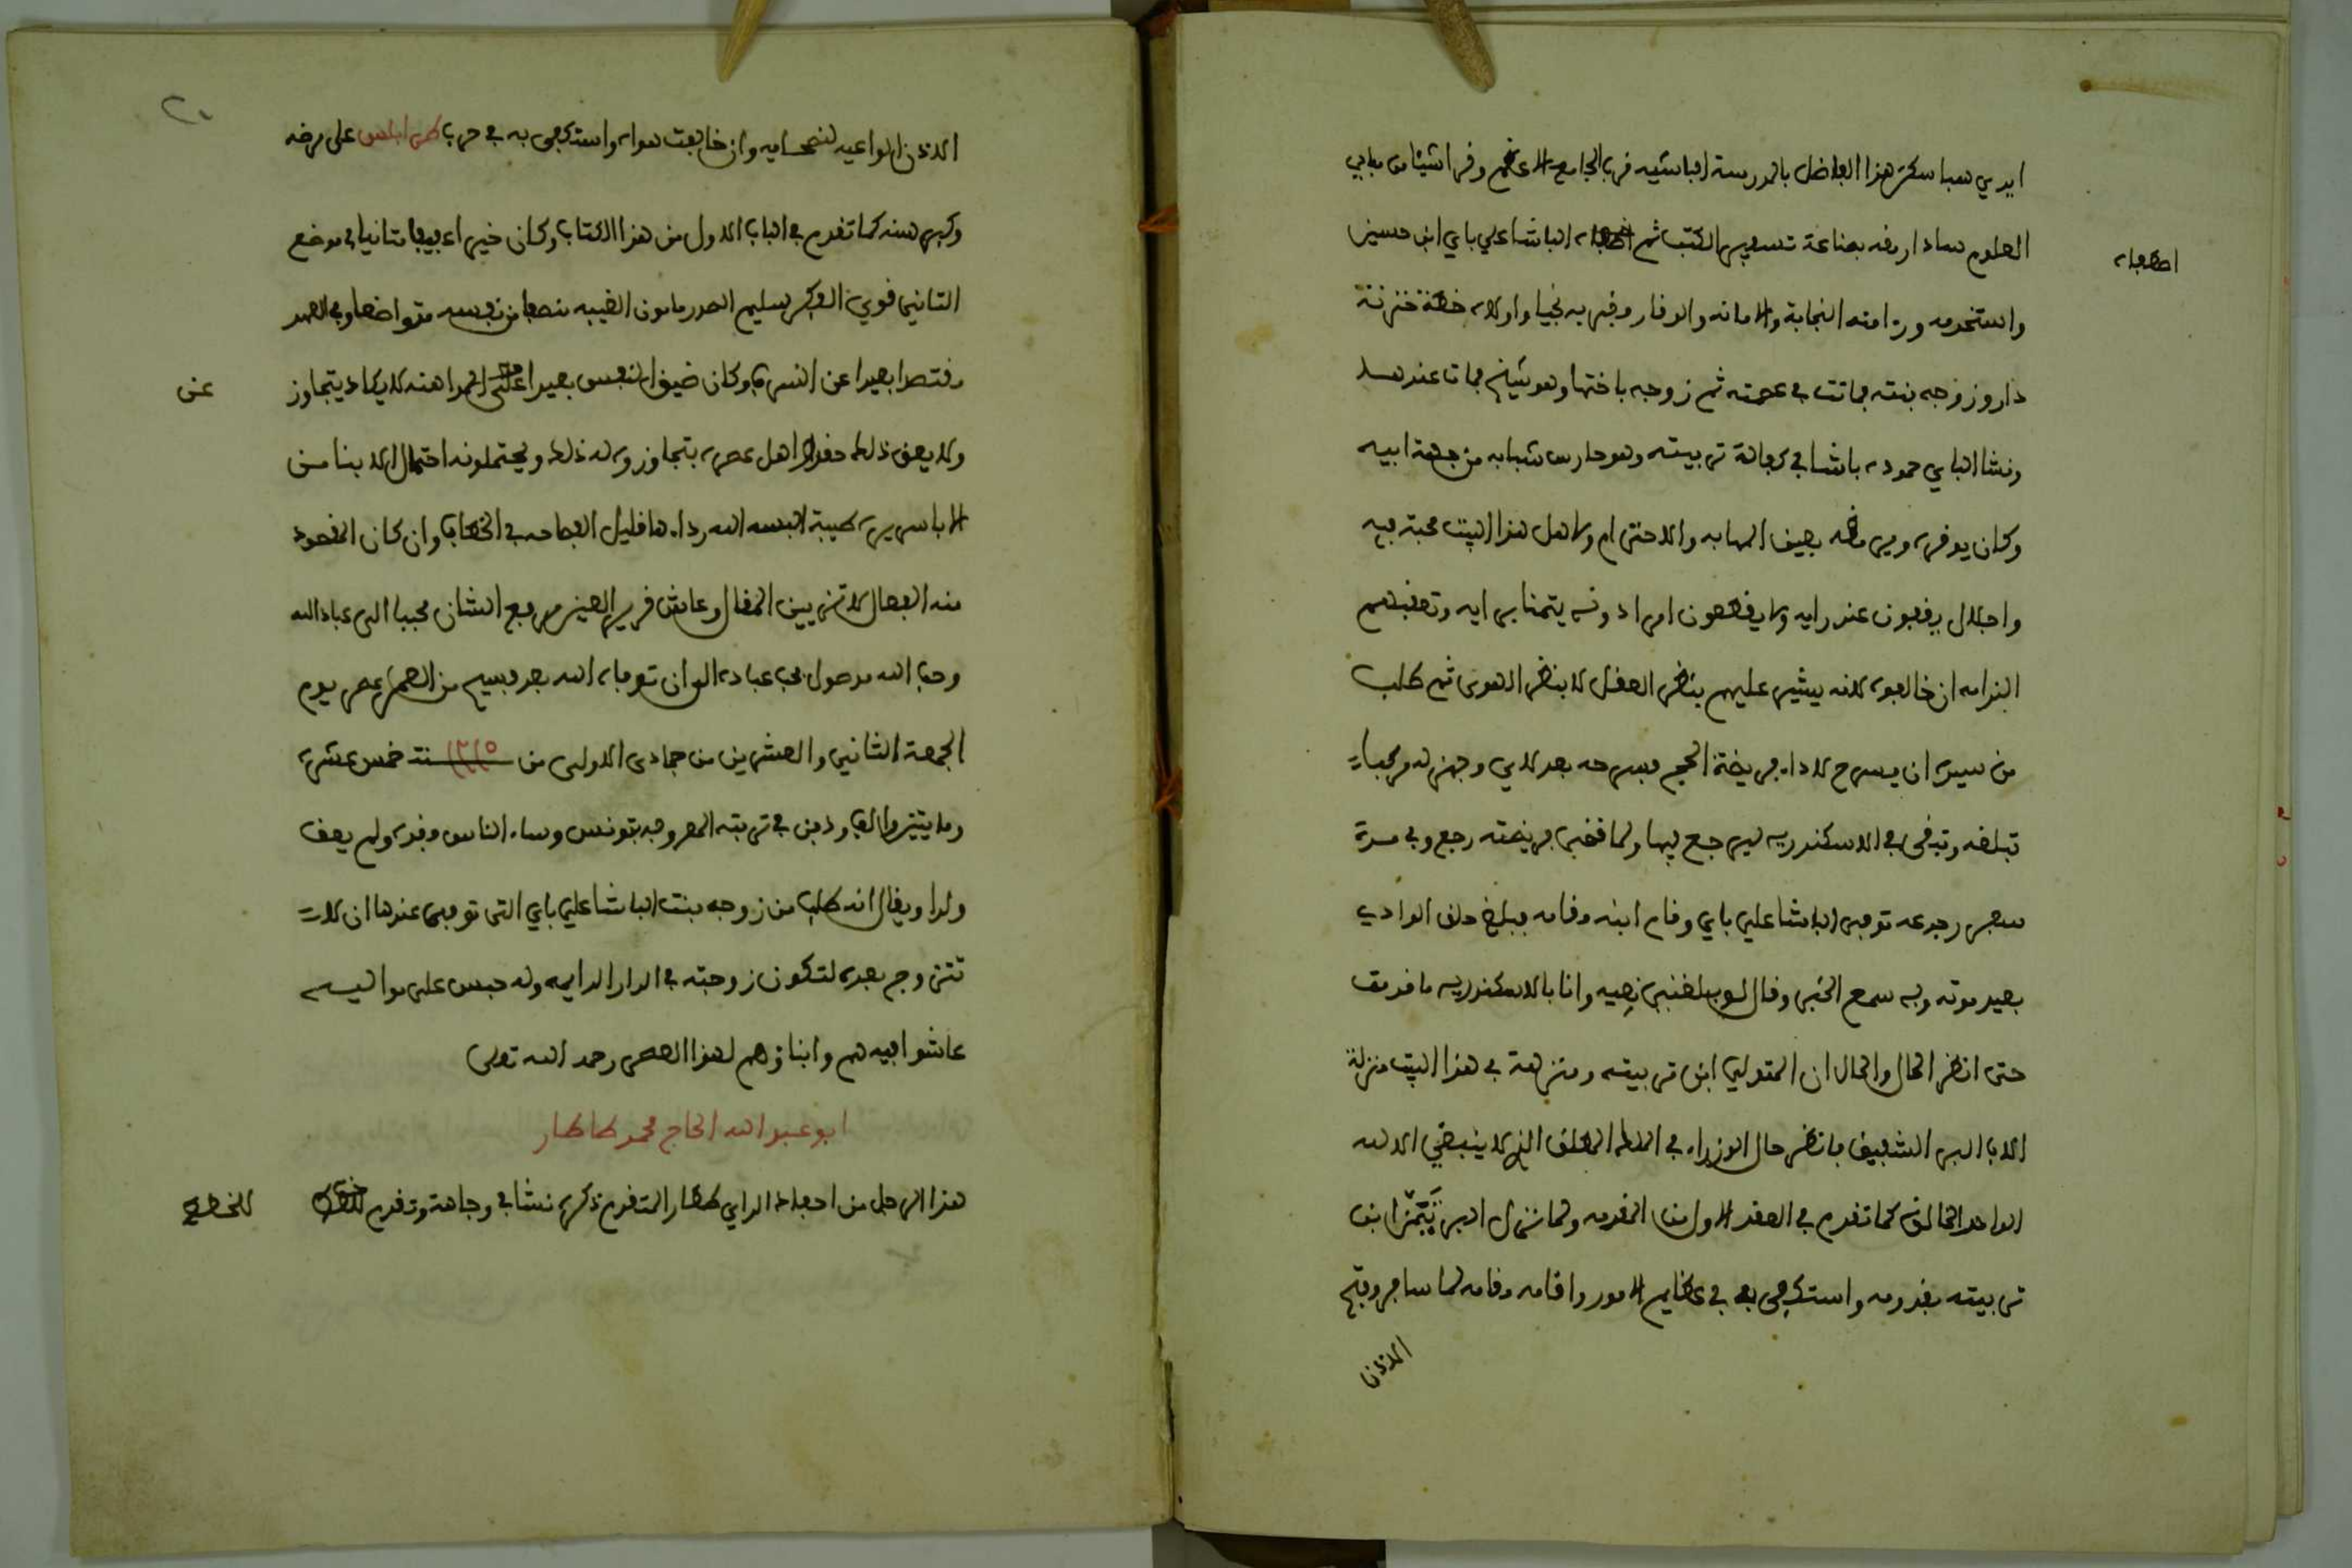 ايدي سبا سكن هذا الفاضل بالمدرسة الباشيه قرب الجامع الاعظم وقرا شيئا من مبادي
العلوم سادا رمقه بصناعة تسفير الكتب ثم اصطفاه الباشا علي باي ابن حسين
اصطفاه
واستخدمه وراى منه النجابة والامانه والوقار وقربه نجيا واولاه خطة خزنة
دار وزوجه بنته فماتت في عصمته ثم زوجه باختها وهو شيخ فمات عندها
ونشا الباي حموده باشا في كفالة تربيته وهو حارس شبابه من جهة ابيه
وكان يوقره ويرمقه بعين المهابه والاحترام ولاهل هذا البيت محبة فيه
واجلال يقفون عند رايه ولا يقطعون امرا دونه يتمنا برايه وتعقبهم
الندامه ان خالفوه لانه يشير عليهم بنظر العقل لا بنظر الهوى ثم طلب
من سيده ان يسرح لاداء فريضة الحج فسرحه بعد لاي وجهز له مركبا
تبلغه وتبقى في الاسكندريه ليرجع فيها ولما قضى فريضته رجع وفي مدة
سفر رجوعه توفي الباشا علي باي وقام ابنه مقامه فبلغ حلق الوادي
بعيد موته وبه سمع الخبر وقال لو بلغني نعيه وانا بالاسكندريه ما قدمت
حتى انظر الحال والحال ان المتولي ابن تربيته ومنزلته في هذا البيت منزلة
الاب البر الشفيق فانظر حال الوزراء في الملك المطلق الذي لا ينبغي الا لله
الواحد الخالق كما تقدم في العقد الاول من المقدمه ولما نزل البر تيمن ابن
تربيته بقدومه واستكفى به في عظايم الامور واقامه مقامه لما سافر وفتح
الاذن
الاذن الواعيه لنصحايه وان خالفت هواه واستكفى به في حرب طرابلس على مرضه
وكبر سنه كما تقدم في الباب الاول من هذا الكتاب وكان خيرا عفيفا متانيا في موضع
التاني قوي الفكر سليم الصدر مامون الغيبه منصفا من نفسه متواضعا وفي العهد
مقتصدا بعيدا عن السرف وكان ضيق النفس بعيدا عن المداهنه لا يكاد يتجاوز
عن
ولا يعرف ذلك مقدار اهل عصره بتجاوزوه له ذلك ويحتملونه احتمال الابنا من
الاب سريرة طيبة البسه الله رداءها قليل الفصاحه في الخطاب وان كان المقصود
منه الفعال لا تزيين المقال وعاش قرير العين مرفع الشان محببا الى عباد الله
وحب الله موصول بحب عباده الى ان توفاه الله بعد فسيح من العمر عصر يوم
الجمعة الثاني والعشرين من جمادى الاولى من سنة ١٢١٥ خمس عشرة
ومايتين والف ودفن في تربته المعروفه بتونس وساء الناس فقده ولم يعقب
ولدا ويقال انه طلب من زوجه بنت الباشا علي باي التي توفى عندها ان لا
تتزوج بعده لتكون زوجته في الدار الدايمه وله حبس على مواليه
عاشوا فيه هم وابناؤهم لهذا العصر رحمه الله تعلى
ابو عبد الله الحاج محمد طاطار
هذا الرجل من احفاد الداي طاطار المتقدم ذكره نشا في وجاهة وتقدم للخطط
للخطط